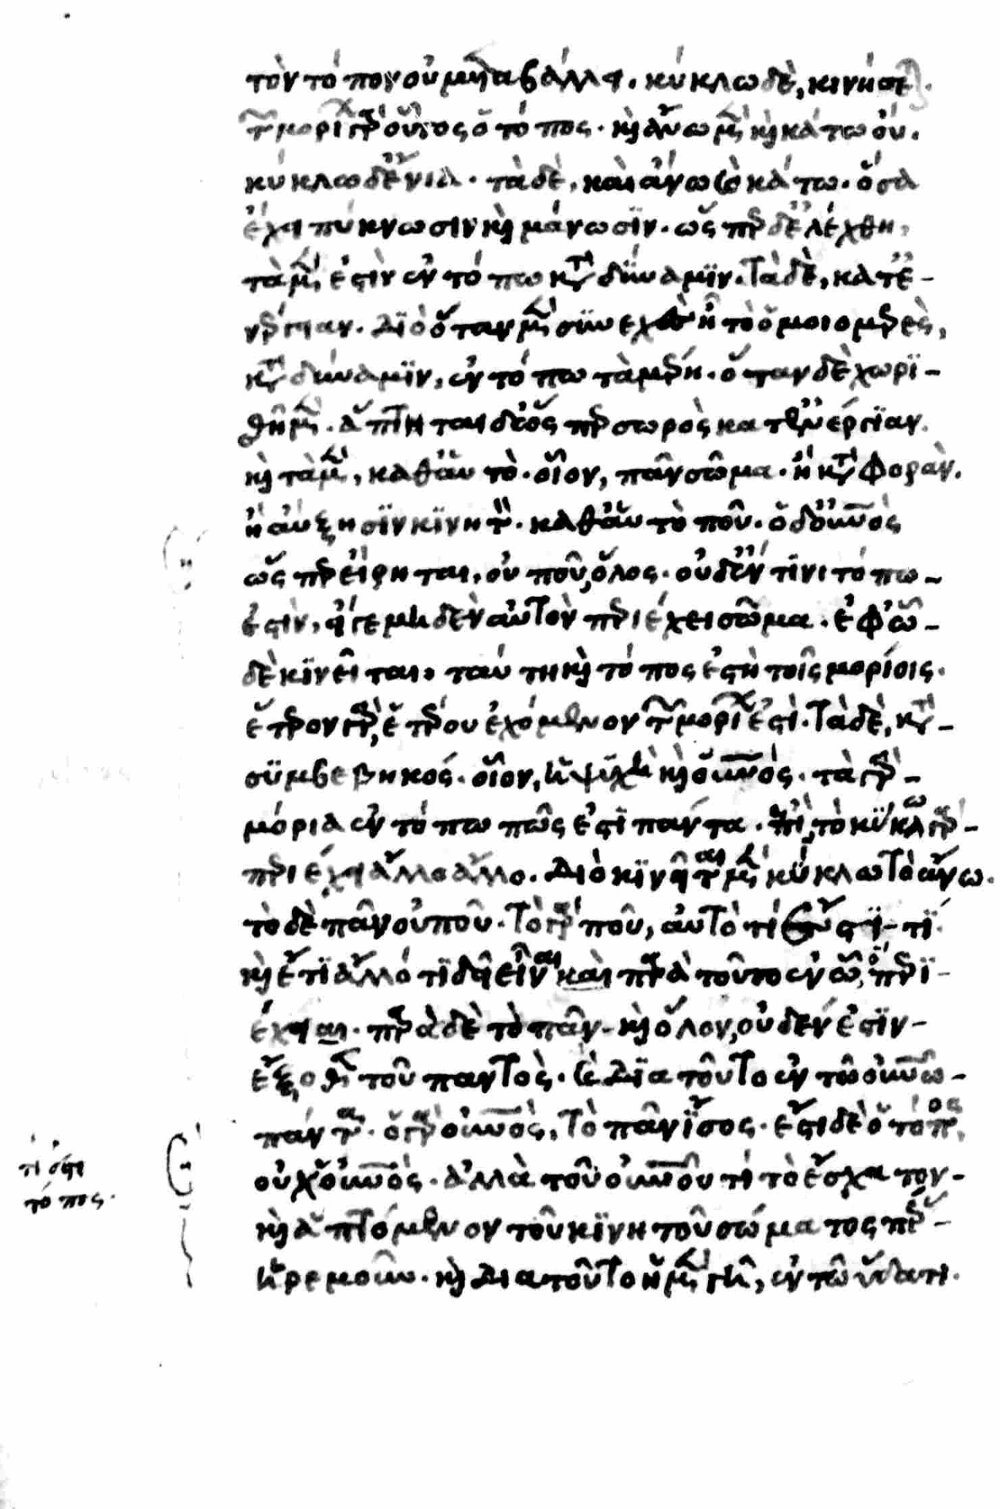 τὸν τόπον οὐ μεταβάλλει. κύκλω δὲ, κινήσεται.
τῶν μορίων γὰρ οὗτος ὁ τόπος. καὶ ἄνω μὲν καὶ κάτω οὔ.
κύκλω δ' ἔνια. τὰ δὲ, καὶ ἄνω καὶ κάτω. ὅσα
ἔχει πύκνωσιν καὶ μάνωσϊν. ὥσπερ δ' ἐλέχθη,
τὰ μὲν, ἐστὶν ἐν τόπω κατὰ δύναμϊν. τὰ δὲ, κατ' ἐ-
νέργειαν. διὸ ὅταν μὲν συνεχὲς ἦ τὸ ὁμοιομερὲς,
κατὰ δύναμϊν, ἐν τόπω τὰ μέρη. ὅταν δὲ χωρϊ-
σθῆ μὲν. ἅπτηται δὲ ὥσπερ σωρὸς κατ' ἐνέργϊαν.
καὶ τὰ μὲν, καθ' αὑτό. οἷον, πᾶν σῶμα. ἢ κατὰ φορὰν.
ἢ αὔξησϊν κϊνητὸν. καθ' αὑτὸ ποῦ. ὁ δ' οὐρανὸς
ὥσπερ εἴρηται, οὐ που ὅλος. οὐδ' ἔν τϊνι τόπω
ἐστὶν, εἴγε μηδὲν αὐτὸν περιέχει σῶμα. ἐφ' ὧ
δὲ κϊνεῖται, ταύτη καὶ τόπος ἐστὶ τοῖς μορίοις.
ἕτερον γὰρ, ἑτέρου ἐχόμενον τῶν μορίων ἐστὶ. τὰ δὲ, κατὰ
σϋμβεβηκός. οἷον, ἡ ψϋχὴ καὶ ὁ οὐρανός. τὰ γὰρ
μόρια ἐν τόπω πῶς ἐστϊ πάντα. ἐπὶ τὸ κύκλω γὰρ
περιέχει ἄλλο ἄλλο. διὸ κϊνεῖται μὲν κύκλω τὸ ἄνω.
τὸ δὲ πᾶν οὐ ποῦ. τὸ γὰρ ποῦ, αὐτό τι ἐστϊ τϊ.
καὶ ἔτϊ ἄλλό τϊ δεῖ εἶναι καὶ παρὰ τοῦτο ἐν ὧ, ὃ περϊ-
έχει. παρὰ δὲ τὸ πᾶν καὶ ὅλον, οὐδέν ἐστϊν
ἔξωθεν τοῦ παντὸς. καὶ δϊὰ τοῦτο ἐν τῶ οὐρανῶ
πάντα. ὁ γὰρ οὐρανὸς, τὸ πᾶν ἴσως. ἔστι δὲ ὁ τόπος,
οὐχ ὁ οὐρανὸς. ἀλλὰ τοῦ οὐρανοῦ τι τὸ ἔσχατον
καὶ ἁπτόμενον τοῦ κϊνητοῦ σώματος πέρας
ἠρεμοῦν. καὶ διὰ τοῦτο ἡ μὲν γῆ, ἐν τῶ ὕδατι.
τί ἐστι
τόπος.